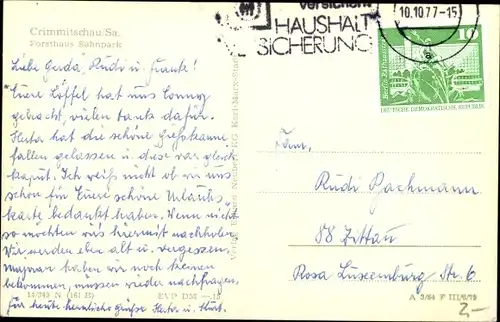 Crimmitschau/Sa.
Forsthaus Sahnpark
Liebe Gerda, Rudi u. Frank!
Eure Löffel hat uns Conny
gebracht, vielen Dank dafür.
Herta hat die schöne Gießkanne
fallen gelassen u. diese war gleich
kaputt. Ich weiß nicht ob wir uns
schon für Eure schöne Urlaubs
karte bedankt haben. Wenn nicht
so möchten wir's hiermit nachholen
Wir werden eben alt u. vergessen.
haben wir noch keinen
bekommen, müssen wieder nachfragen.
Für heute herzliche Grüße Herta u. Kurt.
14/243 N (161 B) EVP DM —.15
KG Karl-Marx-Stadt
versichert
HAUSHALT
SICHERUNG
10.10.77-15
10
DEUTSCHE DEMOKRATISCHE REPUBLIK
Fam.
Rudi Bachmann
88 Zittau
Rosa Luxemburg Str. 6
A 3/64 F III/6/73
2,-